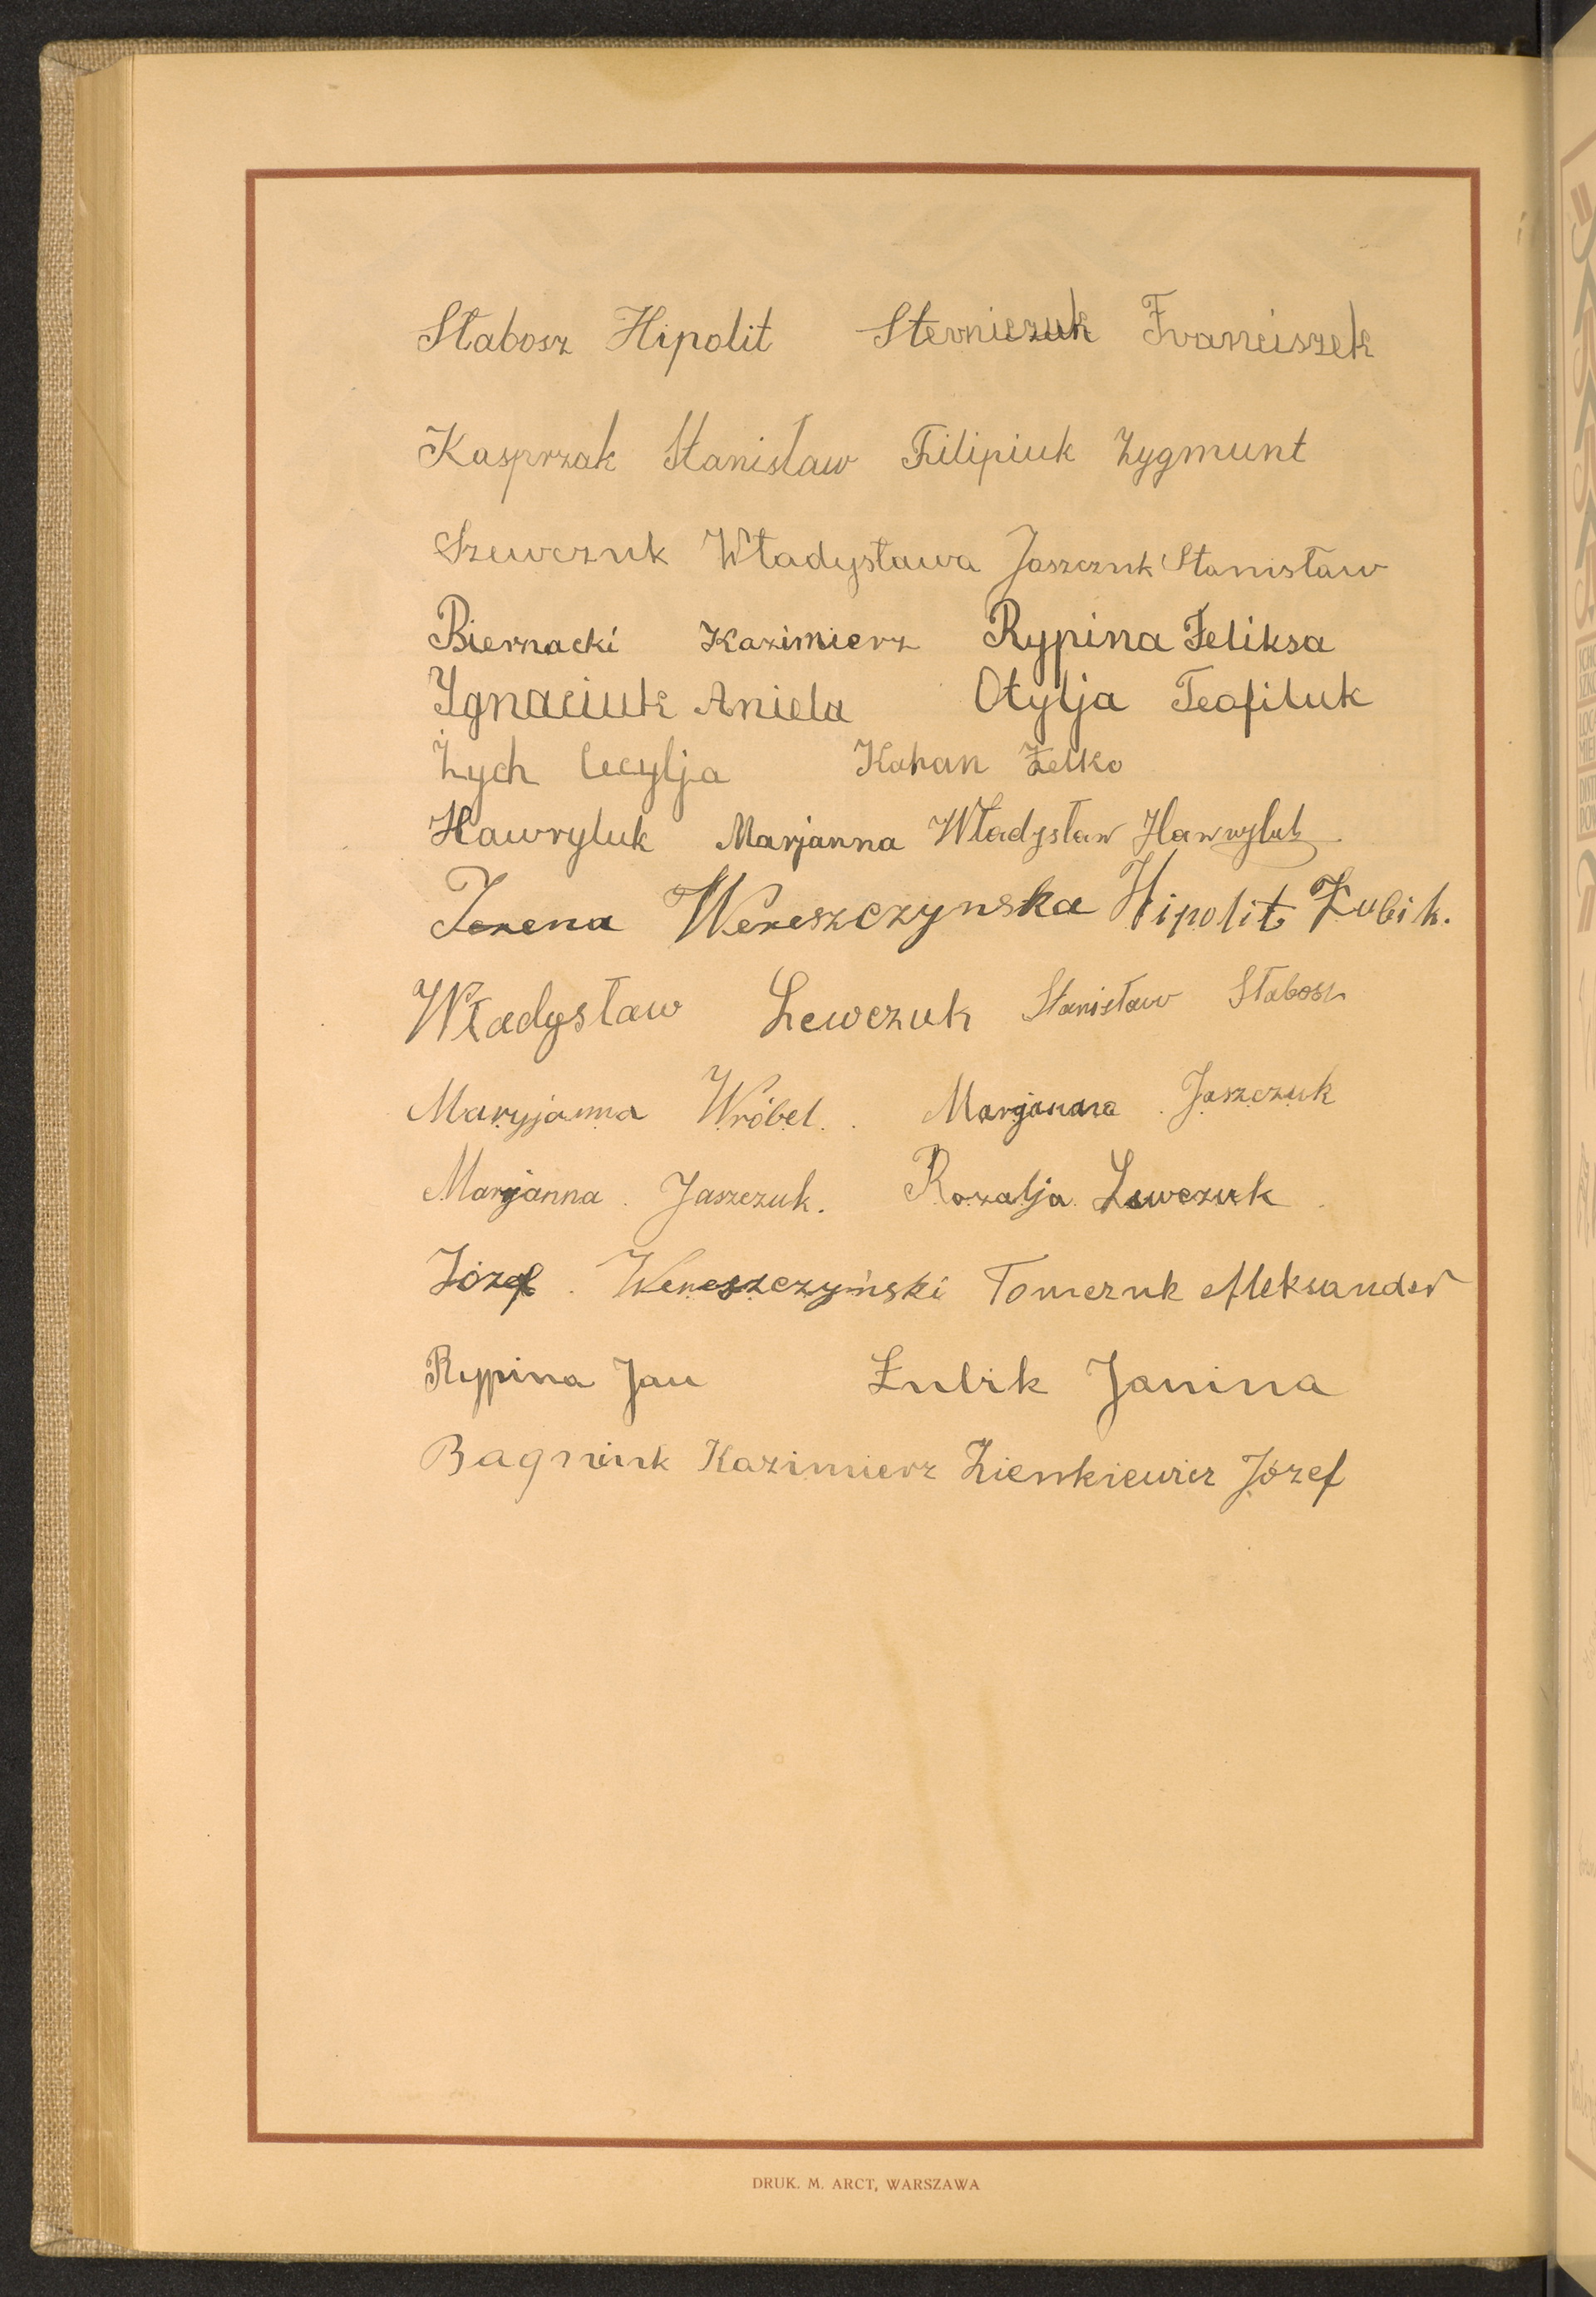 Słabosz Hipolit Sterniczuk Franciszek
Kasprzak Stanisław Filipiuk Zygmunt
Szewczuk Władysława Jaszczuk Stanisław
Biernacki Kazimierz Rypina Feliksa
Ignaciuk Aniela Otylja Teofiluk
Żych Cecylja Kahan Felko
Hawryluk Marjanna Władysław Hawryluk
Irena Wereszczynska Hipolit Żubik.
Władysław Lewczuk Stanisław Słabosz
Maryjanna Wróbel. Marjanna Jaszczuk
Marjanna Jaszczuk. Rozalja Lewczuk
Józef Wereszczyński Tomczuk Aleksander
Rypina Jan Żubik Janina
Bagniuk Kazimierz Zienkiewicz Józef
DRUK. M. ARCT, WARSZAWA